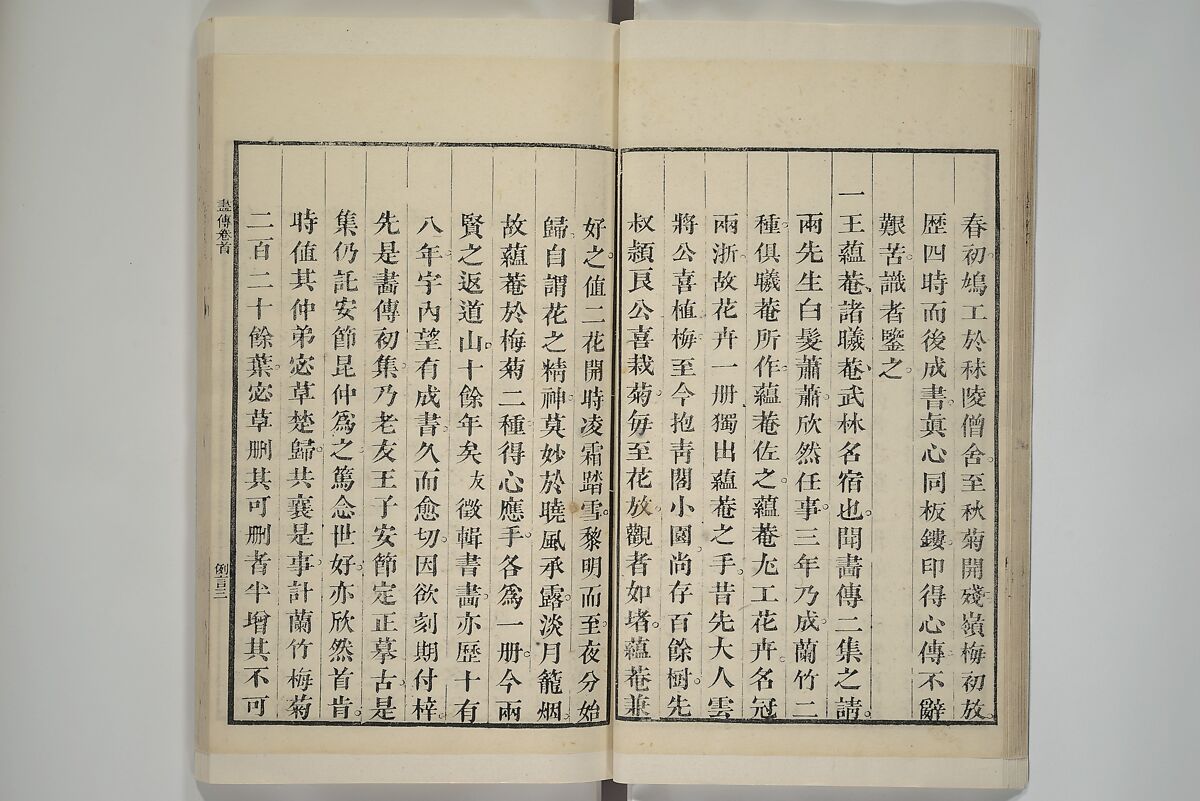 春初鳩工於秣陵僧舍至秋菊開殘嶺梅初放
歴四時而後成書眞心同板鏤印得心傳不辭
艱苦識者鑒之
一王蘊菴諸曦菴武林名宿也聞畵傳二集之請
兩先生白髮蕭蕭欣然任事三年乃成蘭竹二
種俱曦菴所作蘊菴佐之蘊菴尤工花卉名冠
兩浙故花卉一册獨出蘊菴之手昔先大人雲
將公喜植梅至今抱靑閣小園尚存百餘樹先
叔頴良公喜栽菊毎至花放觀者如堵蘊菴兼
好之値二花開時凌霜踏雪黎明而至夜分始
歸自謂花之精神莫妙於曉風承露淡月籠烟
故蘊菴於梅菊二種得心應手各爲一册今兩
賢之返道山十餘年矣友徵輯書畵亦歴十有
八年宇內望有成書久而愈切因欲刻期付梓
先是畵傳初集乃老友王子安節定正摹古是
集仍託安節昆仲爲之篤念世好亦欣然首肯
時値其仲弟宓草楚歸共襄是事計蘭竹梅菊
二百二十餘葉宓草删其可删者半增其不可
畵傳卷首
例言三